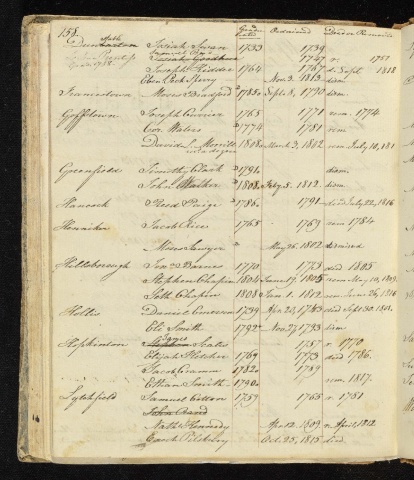 158.
Graduated Ordained Death or Removal
Dunbarton Josiah Swan 1733 1739
1747 r. 1751
Joseph Kidder 1764 1767 d. Sept. 1818
Eben. Peck Sperry Nov. 3. 1813 dism.
Francestown Moses Bradford 1785 Sept. 8, 1790 dism.
Goffstown Joseph Currier 1765 1771 rem. 1774
Cor. Waters 1774 1781 rem.
David L. Morrill 1808 March 3, 1802 rem. July 10, 181
Greenfield Timothy Clark 1791 dism.
John Walker 1808 Feb. 5. 1812. dism
Hancock Reed Paige 1786. 1791 died July 22, 1816
Henniker Jacob Rice 1765 1769 rem. 1784
Moses Sawyer May 26, 1802 dismissed
Hillsborough Jona. Barnes 1770 1773 died 1805
Stephen Chapin 1804 June 19, 1805 rem. May 10, 1809.
Seth Chapin 1808 Jan. 1. 1812 rem. June 26, 1816
Hollis Daniel Emerson 1739 Apr. 20, 1743 died Sept. 30. 1801.
Eli Smith 1792 Nov. 27, 1793 dism.
Hopkinton James Scales 1757 r. 1770
Elijah Fletcher 1769 1773 died 1786.
Jacob Cramm 1782 1789
Ethan Smith 1790 rem. 1817.
Lytchfield Samuel Cotton 1759 1765 r. 1781
Nathl. Kennedy Apr. 12. 1809 r. April, 1812
Enoch Pilsbury Oct. 25, 1815 died